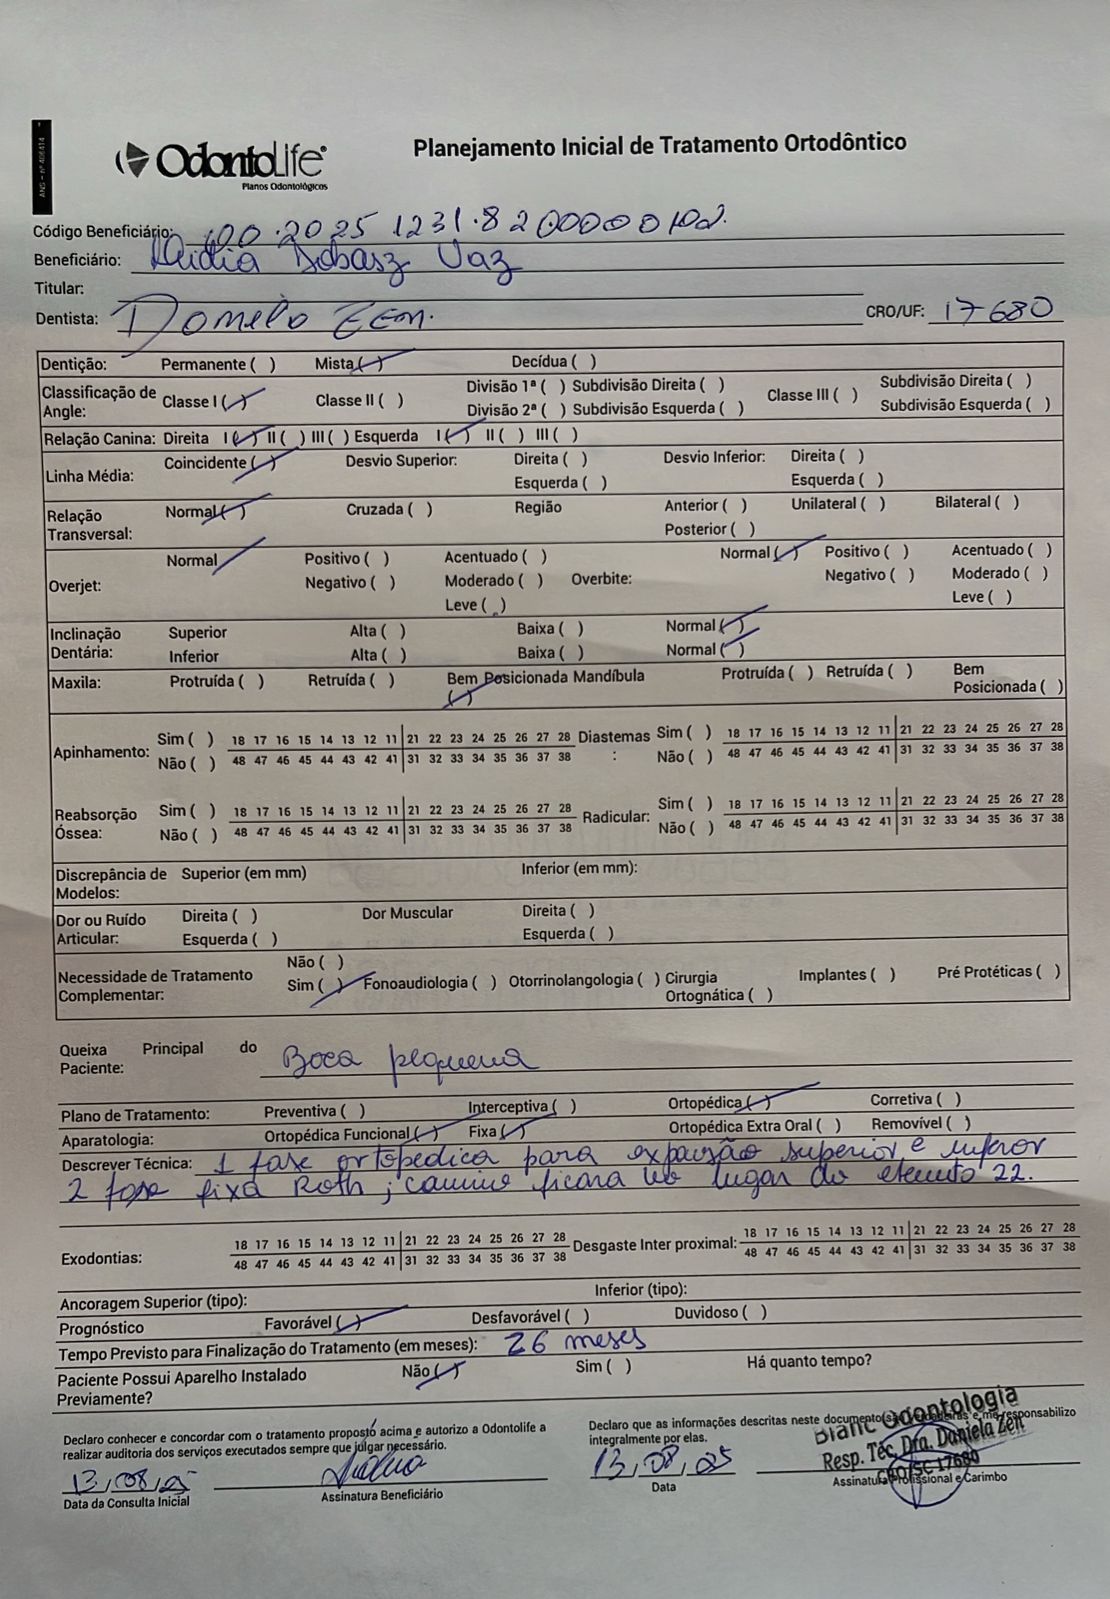 ANS - nº 406414
OdontoLife®
Planos Odontológicos
Planejamento Inicial de Tratamento Ortodôntico
Código Beneficiário: 100.2025 1231.8200000102.
Beneficiário: Vaz
Titular:
Dentista: CRO/UF: 17680
Dentição: Permanente ( ) Mista (/) Decídua ( )
Classificação de Angle: Classe I (/) Classe II ( ) Divisão 1ª ( ) Subdivisão Direita ( ) Divisão 2ª ( ) Subdivisão Esquerda ( ) Classe III ( ) Subdivisão Direita ( ) Subdivisão Esquerda ( )
Relação Canina: Direita I (/) II ( ) III ( ) Esquerda I (/) II ( ) III ( )
Linha Média: Coincidente (/) Desvio Superior: Direita ( ) Esquerda ( ) Desvio Inferior: Direita ( ) Esquerda ( )
Relação Transversal: Normal (/) Cruzada ( ) Região Anterior ( ) Posterior ( ) Unilateral ( ) Bilateral ( )
Overjet: Normal / Positivo ( ) Negativo ( ) Acentuado ( ) Moderado ( ) Leve ( ) Overbite: Normal (/) Positivo ( ) Negativo ( ) Acentuado ( ) Moderado ( ) Leve ( )
Inclinação Dentária: Superior Alta ( ) Baixa ( ) Normal (/)
Inferior Alta ( ) Baixa ( ) Normal (/)
Maxila: Protruída ( ) Retruída ( ) Bem Posicionada (/) Mandíbula Protruída ( ) Retruída ( ) Bem Posicionada ( )
Apinhamento: Sim ( ) 18 17 16 15 14 13 12 11 21 22 23 24 25 26 27 28 Diastemas: Sim ( ) 18 17 16 15 14 13 12 11 21 22 23 24 25 26 27 28
Não ( ) 48 47 46 45 44 43 42 41 31 32 33 34 35 36 37 38 Não ( ) 48 47 46 45 44 43 42 41 31 32 33 34 35 36 37 38
Reabsorção Óssea: Sim ( ) 18 17 16 15 14 13 12 11 21 22 23 24 25 26 27 28 Radicular: Sim ( ) 18 17 16 15 14 13 12 11 21 22 23 24 25 26 27 28
Não ( ) 48 47 46 45 44 43 42 41 31 32 33 34 35 36 37 38 Não ( ) 48 47 46 45 44 43 42 41 31 32 33 34 35 36 37 38
Discrepância de Modelos: Superior (em mm) Inferior (em mm):
Dor ou Ruído Articular: Direita ( ) Esquerda ( ) Dor Muscular Direita ( ) Esquerda ( )
Necessidade de Tratamento Complementar: Não ( ) Sim (/) Fonoaudiologia ( ) Otorrinolangologia ( ) Cirurgia Ortognática ( ) Implantes ( ) Pré Protéticas ( )
Queixa Principal do Paciente: Boca pequena
Plano de Tratamento: Preventiva ( ) Interceptiva ( ) Ortopédica (/) Corretiva ( )
Aparatologia: Ortopédica Funcional (/) Fixa (/) Ortopédica Extra Oral ( ) Removível ( )
Descrever Técnica: 1 fase ortopedica para expansão superior e inferor
2 fase fixa Roth ; canino ficara no lugar do elemento 22.
Exodontias: 18 17 16 15 14 13 12 11 21 22 23 24 25 26 27 28 Desgaste Inter proximal: 18 17 16 15 14 13 12 11 21 22 23 24 25 26 27 28
48 47 46 45 44 43 42 41 31 32 33 34 35 36 37 38 48 47 46 45 44 43 42 41 31 32 33 34 35 36 37 38
Ancoragem Superior (tipo): Inferior (tipo):
Prognóstico Favorável (/) Desfavorável ( ) Duvidoso ( )
Tempo Previsto para Finalização do Tratamento (em meses): 26 meses
Paciente Possui Aparelho Instalado Previamente? Não (/) Sim ( ) Há quanto tempo?
Declaro conhecer e concordar com o tratamento proposto acima e autorizo a Odontolife a
realizar auditoria dos serviços executados sempre que julgar necessário.
Declaro que as informações descritas neste documento são verdadeiras e me responsabilizo
integralmente por elas.
13,08,25
Data da Consulta Inicial
Assinatura Beneficiário
13,08,25
Data
Odontologia
Resp. Téc. Dra. Daniela Zen
CRO/SC 17680
Assinatura Profissional e Carimbo